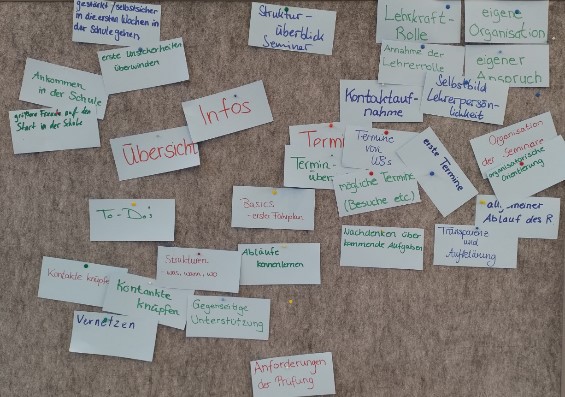 gestärkt / selbstsicher
in die ersten Wochen in
der Schule gehen
erste Unsicherheiten
überwinden
Ankommen
in der Schule
größere Freude auf den
Start in der Schule
Übersicht
Infos
Struktur-
überblick
Seminar
Lehrkraft-
Rolle
eigene
Organisation
Annahme der
Lehrerrolle
eigener
Anspruch
Selbstbild
Lehrerpersön-
lichkeit
Kontaktauf-
nahme
Termi
Termine
von
UBs
Termin-
über
mögliche Termine
(Besuche etc.)
erste Termine
Organisation
der Seminare
organisatorische
Orientierung
allgemeiner
Ablauf des R
Transparenz
und
Aufklärung
Nachdenken über
kommende Aufgaben
To-Do's
Basics
- erster Fahrplan
Strukturen
was, wann, wo
Abläufe
kennenlernen
Kontakte knüpfe
Kontakte
knüpfen
Vernetzen
Gegenseitige
Unterstützung
Anforderungen
der Prüfung